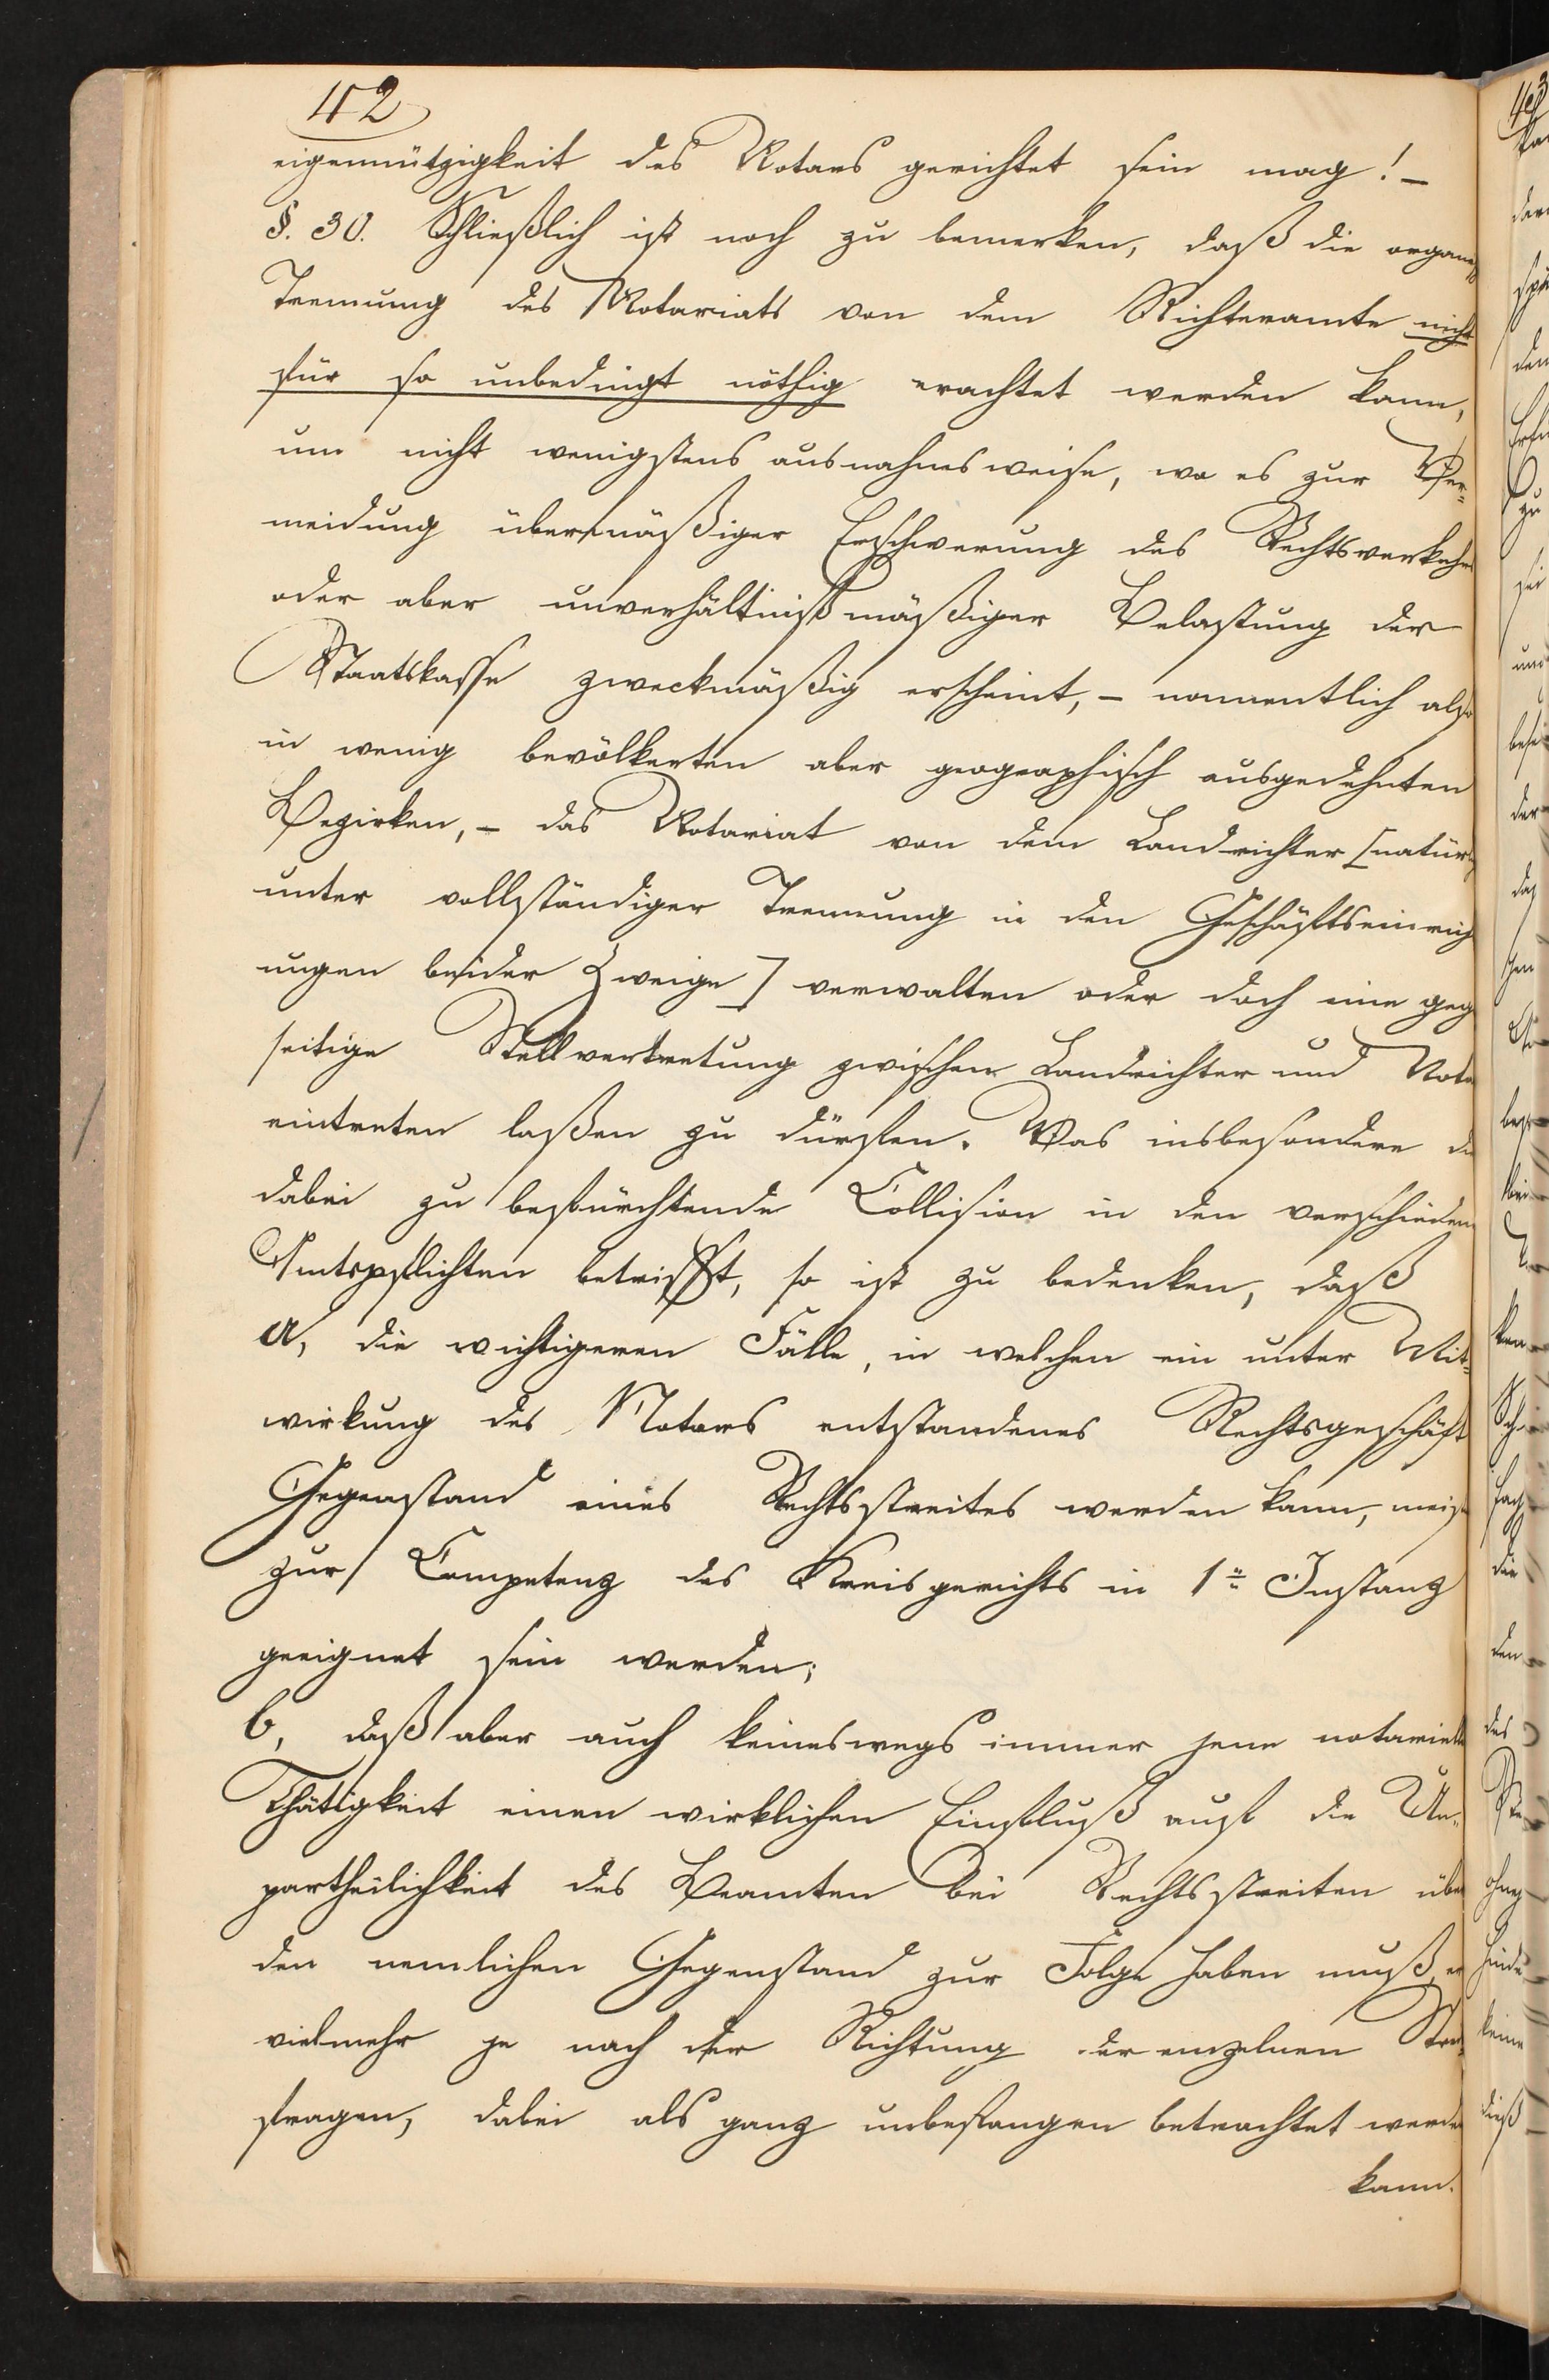 42
eigennützigkeit des Notars gerichtet sein mag! –
§. 30. Schließlich ist noch zu bemerken, daß die organ
Trennung des Notariats von dem Richteramte nicht
für so unbedingt nöthig erachtet werden kann,
um nicht wenigstens ausnahmsweise, wo es zur Ver-
meidung übermäßiger Erschwerung des Rechtsverkehrs
oder aber unverhältnißmäßiger Belastung der
Staatskasse zweckmäßig erscheint, – namentlich also
in wenig bevölkerten aber geographisch ausgedehnten
Bezirken, – das Notariat von dem Landrichter [natürl
unter vollständiger Trennung in den Geschäftseinrich
ungen beider Zweige] verwalten oder doch eine geg
seitige Stellvertretung zwischen Landrichter und Nota
eintreten laßen zu dürfen. Was insbesondere die
dabei zu befürchtende Collision in den verschieden
Amtspflichten betrifft, so ist zu bedenken, daß
a, die wichtigeren Fälle, in welchen ein unter Mit-
wirkung des Notars entstandenes Rechtsgeschäft
Gegenstand eines Rechtsstreites werden kann, meist
zur Competenz des Kreisgerichts in 1r Instanz
geeignet sein werden;
b, daß aber auch keineswegs immer jene notarielle
Thätigkeit einen wirklichen Einfluß auf die Un-
partheilichkeit des Beamten bei Rechtsstreiten über
den nemlichen Gegenstand zur Folge haben muß, er
vielmehr je nach der Richtung der einzelnen Strei
fragen, dabei als ganz unbefangen betrachtet werden
kann.